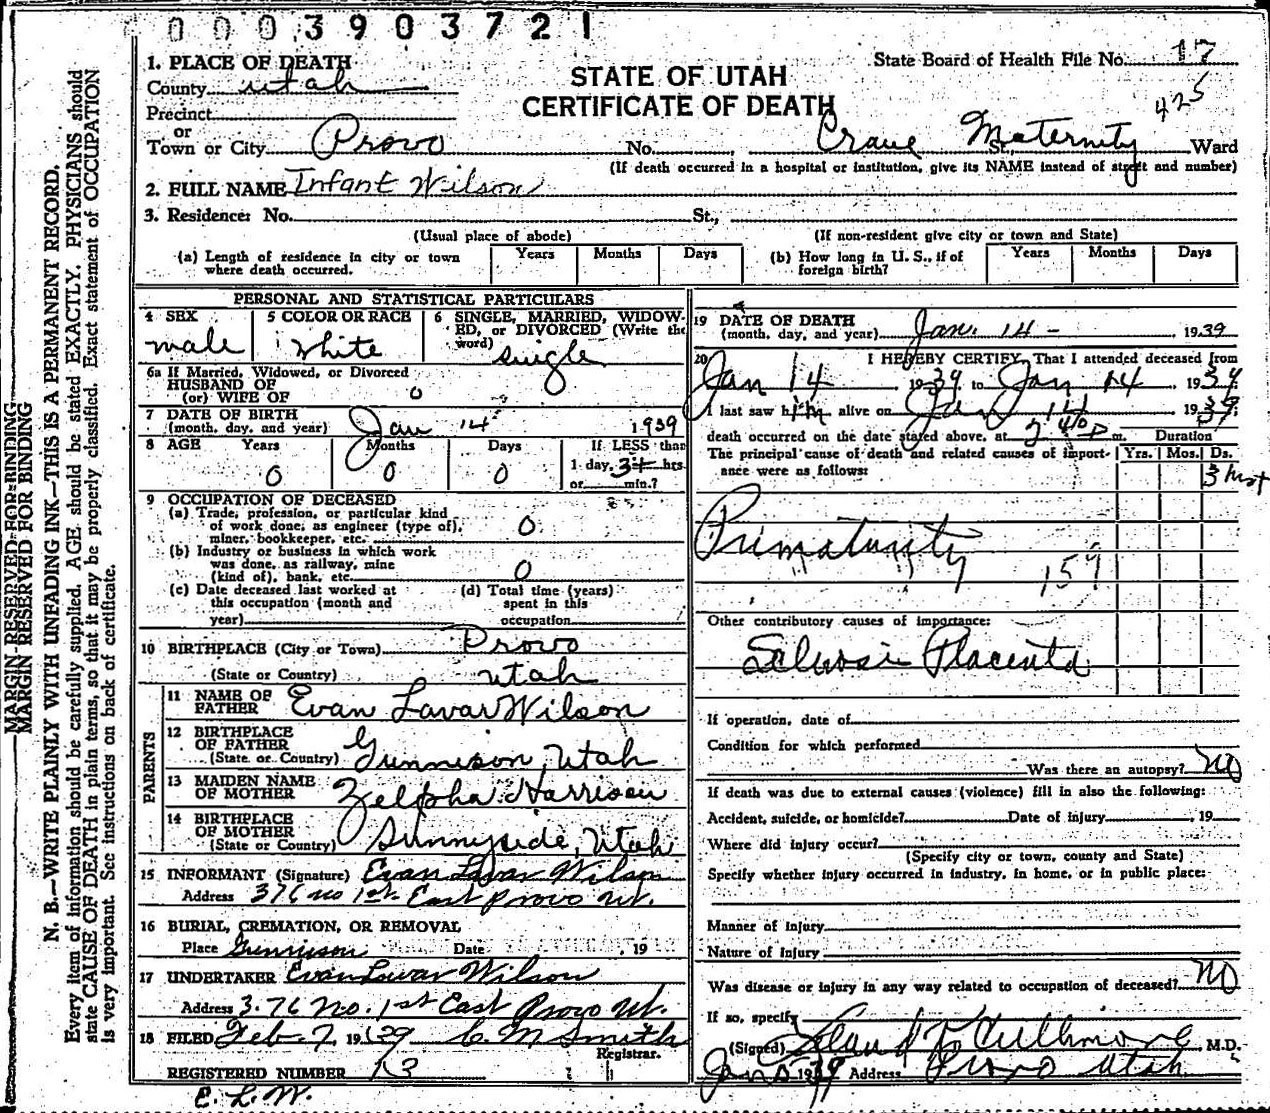 0003903721
1. PLACE OF DEATH
County Utah
STATE OF UTAH
CERTIFICATE OF DEATH
State Board of Health File No. 17
425
Precinct
or
Town or City Provo No. Crane Maternity St. Ward
(If death occurred in a hospital or institution, give its NAME instead of street and number)
2. FULL NAME Infant Wilson
3. Residence: No. St.,
(Usual place of abode) (If non-resident give city or town and State)
(a) Length of residence in city or town where death occurred. Years Months Days (b) How long in U. S., if of foreign birth? Years Months Days
PERSONAL AND STATISTICAL PARTICULARS
4 SEX male
5 COLOR OR RACE White
6 SINGLE, MARRIED, WIDOWED, or DIVORCED (Write the word) single
6a If Married, Widowed, or Divorced
HUSBAND OF
(or) WIFE OF 0
7 DATE OF BIRTH
(month, day, and year) Jan 14 1939
8 AGE Years Months Days If LESS than
0 0 0 1 day, 3+ hrs
or min.?
9 OCCUPATION OF DECEASED
(a) Trade, profession, or particular kind
of work done, as engineer (type of),
miner, bookkeeper, etc. 0
(b) Industry or business in which work
was done, as railway, mine
(kind of), bank, etc. 0
(c) Date deceased last worked at
this occupation (month and
year)
(d) Total time (years)
spent in this
occupation
10 BIRTHPLACE (City or Town) Provo
(State or Country) Utah
PARENTS
11 NAME OF FATHER Evan Lavar Wilson
12 BIRTHPLACE OF FATHER
(State or Country) Gunnison, Utah
13 MAIDEN NAME OF MOTHER Zelpha Harrison
14 BIRTHPLACE OF MOTHER
(State or Country) Sunnyside, Utah
15 INFORMANT (Signature) Evan Lavar Wilson
Address 376 no 1st East Provo Ut.
16 BURIAL, CREMATION, OR REMOVAL
Place Gunnison Date , 19
17 UNDERTAKER Evan Lavar Wilson
Address 376 No. 1st East Provo Ut.
18 FILED Feb. 7, 1939 C. M Smith
Registrar.
REGISTERED NUMBER 13
E. L. W.
19 DATE OF DEATH
(month, day, and year) Jan. 14 - 1939
20 I HEREBY CERTIFY, That I attended deceased from
Jan 14 1939 to Jan 14, 1939
I last saw him alive on Jan 14 1939
death occurred on the date stated above, at 2 40 P m. Duration
The principal cause of death and related causes of importance were as follows: Yrs. Mos. Ds.
3 hrs+
Prematurity 159
Other contributory causes of importance:
Placenta
If operation, date of
Condition for which performed
Was there an autopsy? no
If death was due to external causes (violence) fill in also the following:
Accident, suicide, or homicide? Date of injury , 19
Where did injury occur?
(Specify city or town, county and State)
Specify whether injury occurred in industry, in home, or in public place:
Manner of injury
Nature of injury
Was disease or injury in any way related to occupation of deceased? no
If so, specify
(Signed) M.D.
Address Provo Utah
MARGIN RESERVED FOR BINDING
MARGIN RESERVED FOR BINDING
N. B.—WRITE PLAINLY WITH UNFADING INK—THIS IS A PERMANENT RECORD.
Every item of information should be carefully supplied. AGE should be stated EXACTLY. PHYSICIANS should
state CAUSE OF DEATH in plain terms, so that it may be properly classified. Exact statement of OCCUPATION
is very important. See instructions on back of certificate.